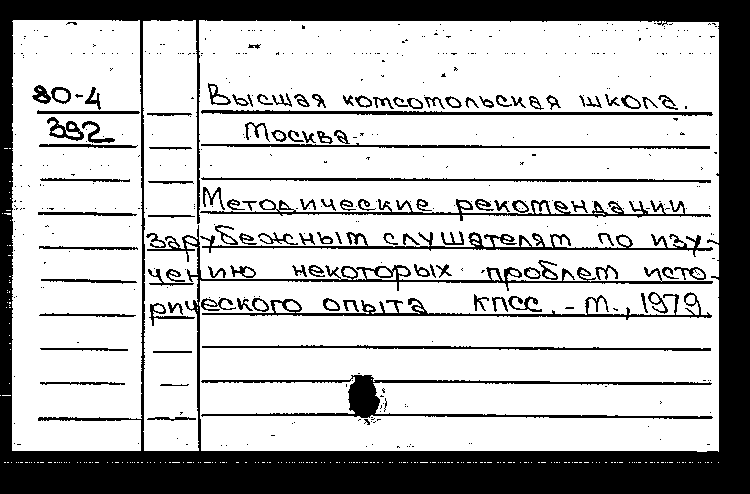 80-4 Высшая комсомольская школа.
392 Москва.
Методические рекомендации
зарубежным слушателям по изу-
чению некоторых проблем исто-
рического опыта КПСС. - М., 1979.